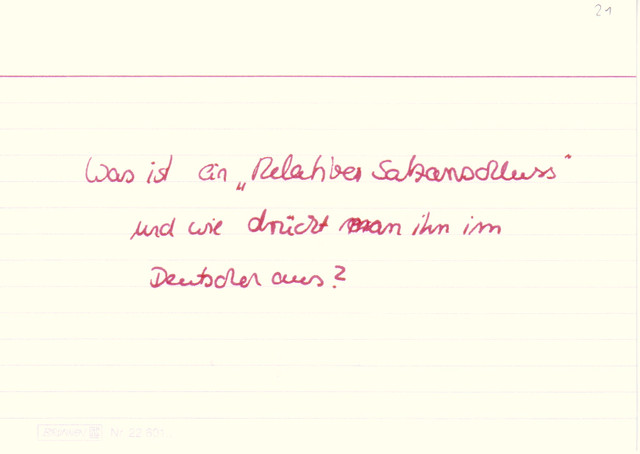 21
Was ist ein „Relativer Satzanschluss"
und wie drückt man ihn im
Deutschen aus?
BRUNNEN Nr. 22 601